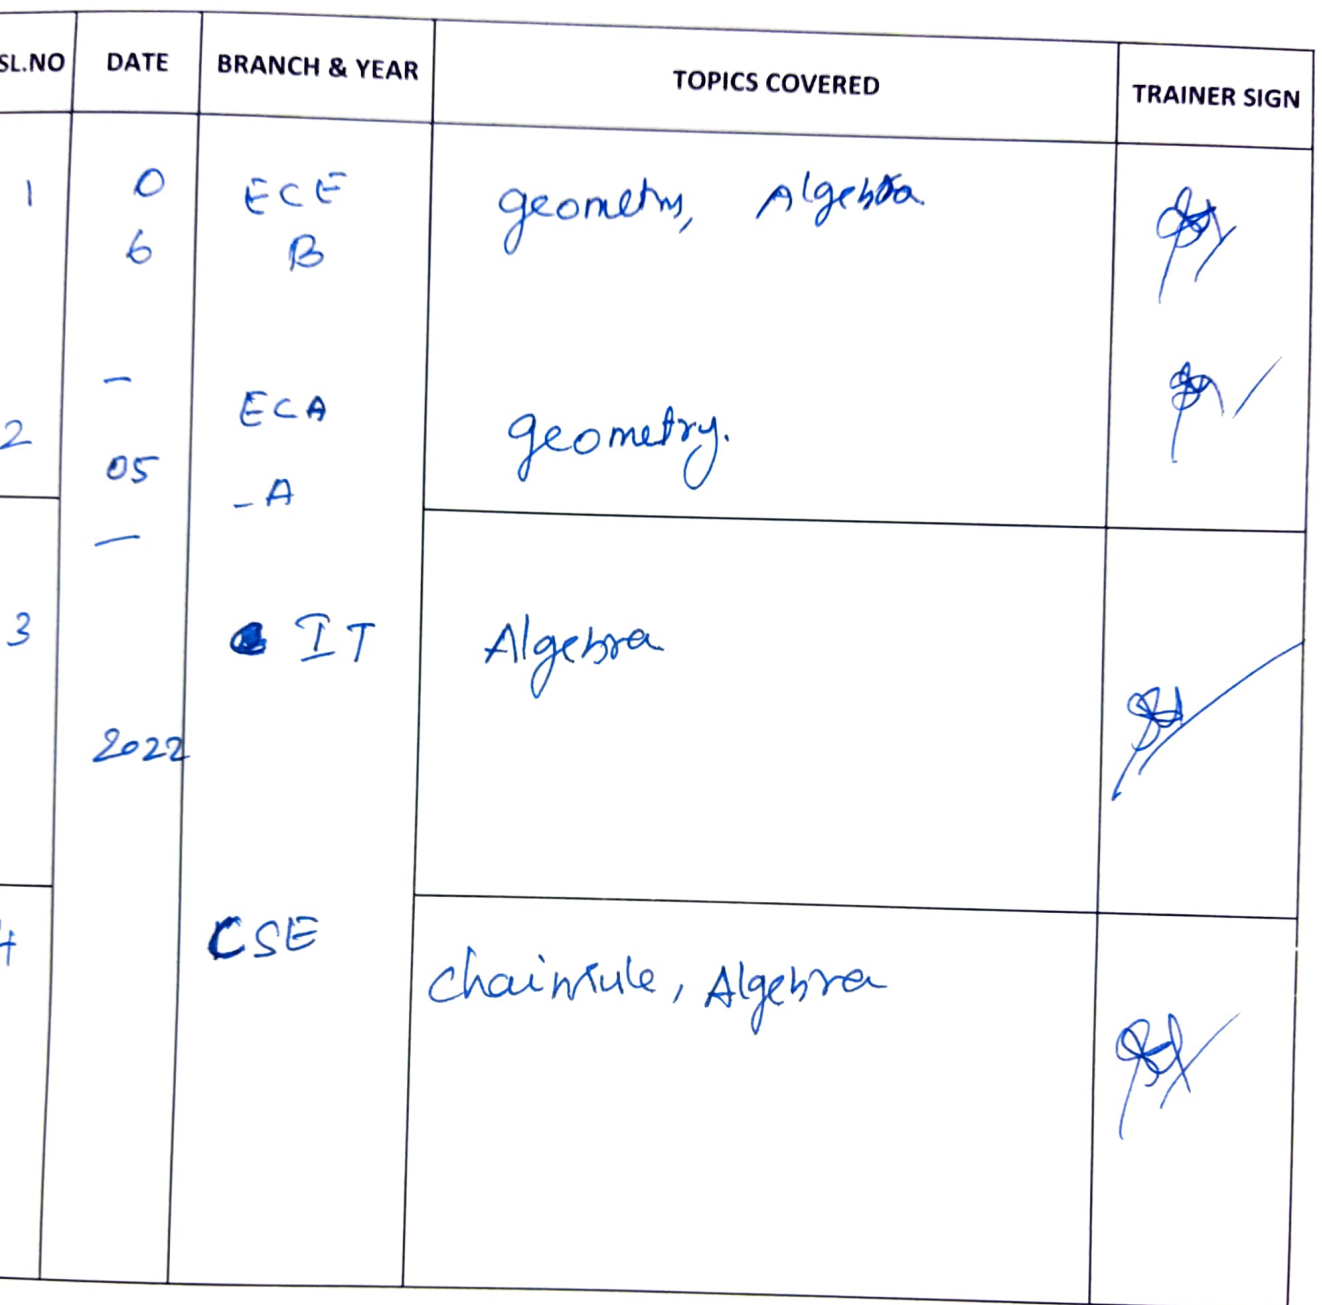 SL.NO DATE BRANCH & YEAR TOPICS COVERED TRAINER SIGN
1 0 ECE geometry, Algebra.
6 B
-
2 ECA geometry.
05 - A
-
3 IT Algebra
2022
4 CSE chainrule, Algebra